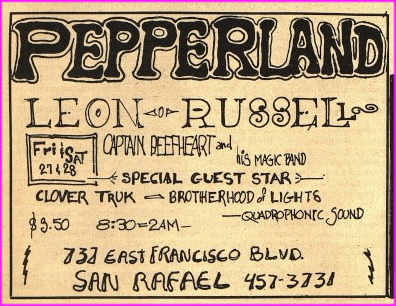 PEPPERLAND
LEON RUSSELL
Fri & SAT
27 & 28
CAPTAIN BEEFHEART and his MAGIC BAND
SPECIAL GUEST STAR
CLOVER TRUK — BROTHERHOOD of LIGHTS
$3.50 8:30=2AM— —QUADROPHONIC SOUND
737 EAST FRANCISCO BLVD.
SAN RAFAEL 457-3731